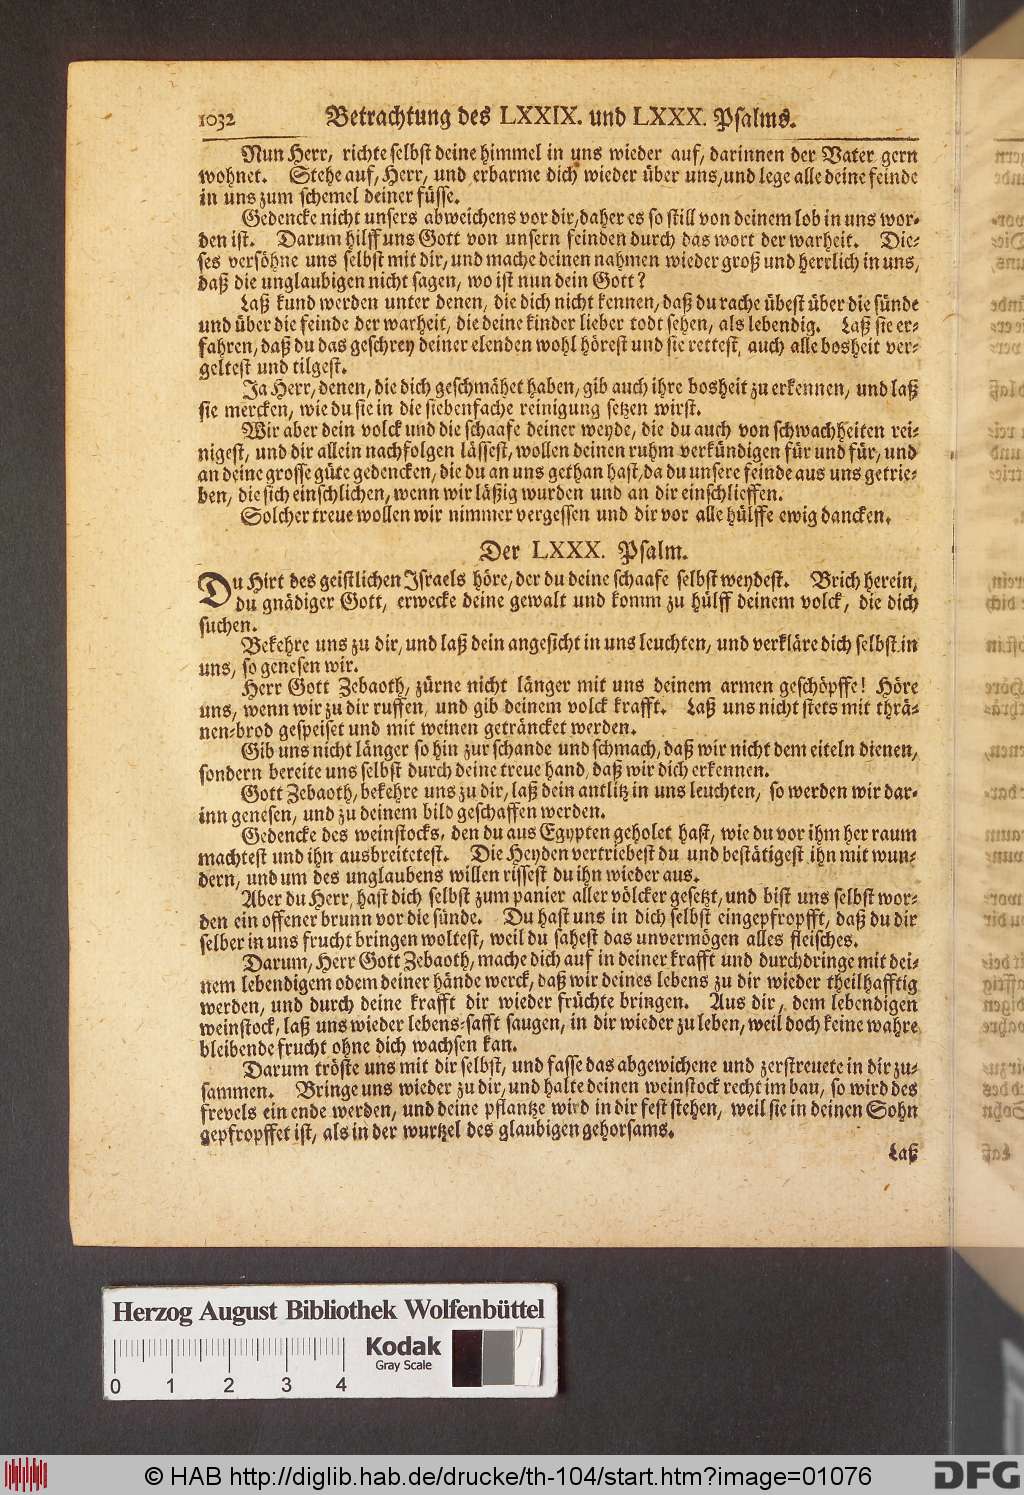 1032 Betrachtung des LXXIX. und LXXX. Psalms.
Nun Herr, richte selbst deine himmel in uns wieder auf, darinnen der Vater gern
wohnet. Stehe auf, Herr, und erbarme dich wieder über uns, und lege alle deine feinde
in uns zum schemel deiner füsse.
Gedencke nicht unsers abweichens vor dir, daher es so still von deinem lob in uns wor-
den ist. Darum hilff uns Gott von unsern feinden durch das wort der warheit. Die-
ses versöhne uns selbst mit dir, und mache deinen nahmen wieder groß und herrlich in uns,
daß die unglaubigen nicht sagen, wo ist nun dein Gott?
Laß kund werden unter denen, die dich nicht kennen, daß du rache übest über die sünde
und über die feinde der warheit, die deine kinder lieber todt sehen, als lebendig. Laß sie er-
fahren, daß du das geschrey deiner elenden wohl hörest und sie rettest, auch alle bosheit ver-
geltest und tilgest.
Ja Herr, denen, die dich geschmähet haben, gib auch ihre bosheit zu erkennen, und laß
sie mercken, wie du sie in die siebenfache reinigung setzen wirst.
Wir aber dein volck und die schaafe deiner weyde, die du auch von schwachheiten rei-
nigest, und dir allein nachfolgen lässest, wollen deinen ruhm verkündigen für und für, und
an deine grosse güte gedencken, die du an uns gethan hast, da du unsere feinde aus uns getrie-
ben, die sich einschlichen, wenn wir läßig wurden und an dir einschlieffen.
Solcher treue wollen wir nimmer vergessen und dir vor alle hülffe ewig dancken.
Der LXXX. Psalm.
Du Hirt des geistlichen Israels höre, der du deine schaafe selbst weydest. Brich herein,
du gnädiger Gott, erwecke deine gewalt und komm zu hülff deinem volck, die dich
suchen.
Bekehre uns zu dir, und laß dein angesicht in uns leuchten, und verkläre dich selbst in
uns, so genesen wir.
Herr Gott Zebaoth, zürne nicht länger mit uns deinem armen geschöpffe! Höre
uns, wenn wir zu dir ruffen, und gib deinem volck krafft. Laß uns nicht stets mit thrä-
nen-brod gespeiset und mit weinen geträncket werden.
Gib uns nicht länger so hin zur schande und schmach, daß wir nicht dem eiteln dienen,
sondern bereite uns selbst durch deine treue hand, daß wir dich erkennen.
Gott Zebaoth, bekehre uns zu dir, laß dein antlitz in uns leuchten, so werden wir dar-
inn genesen, und zu deinem bild geschaffen werden.
Gedencke des weinstocks, den du aus Egypten geholet hast, wie du vor ihm her raum
machtest und ihn ausbreitetest. Die Heyden vertriebest du und bestätigest ihn mit wun-
dern, und um des unglaubens willen rissest du ihn wieder aus.
Aber du Herr, hast dich selbst zum panier aller völcker gesetzt, und bist uns selbst wor-
den ein offener brunn vor die sünde. Du hast uns in dich selbst eingepfropfft, daß du dir
selber in uns frucht bringen woltest, weil du sahest das unvermögen alles fleisches.
Darum, Herr Gott Zebaoth, mache dich auf in deiner krafft und durchdringe mit dei-
nem lebendigem odem deiner hände werck, daß wir deines lebens zu dir wieder theilhafftig
werden, und durch deine krafft dir wieder früchte bringen. Aus dir, dem lebendigen
weinstock, laß uns wieder lebens-safft saugen, in dir wieder zu leben, weil doch keine wahre
bleibende frucht ohne dich wachsen kan.
Darum tröste uns mit dir selbst, und fasse das abgewichene und zerstreuete in dir zu-
sammen. Bringe uns wieder zu dir, und halte deinen weinstock recht im bau, so wird des
frevels ein ende werden, und deine pflantze wird in dir fest stehen, weil sie in deinen Sohn
gepfropffet ist, als in der wurtzel des glaubigen gehorsams.
Laß
Herzog August Bibliothek Wolfenbüttel
Kodak
Gray Scale
0 1 2 3 4
© HAB http://diglib.hab.de/drucke/th-104/start.htm?image=01076
DFG